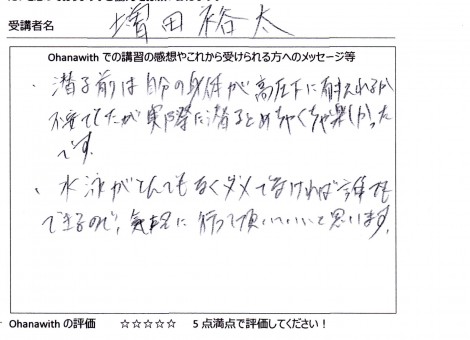 受講者名 増田裕太
Ohanawith での講習の感想やこれから受けられる方へのメッセージ等
・潜る前は自分の身体が高圧下に耐えれるか
不安でしたが実際に潜るとめちゃくちゃ楽しかった
です。
・水泳がとんでもなくダメでなければ誰でも
できるので、気軽に行って頂いていいと思います。
Ohanawith の評価 ☆☆☆☆☆ 5 点満点で評価してください！